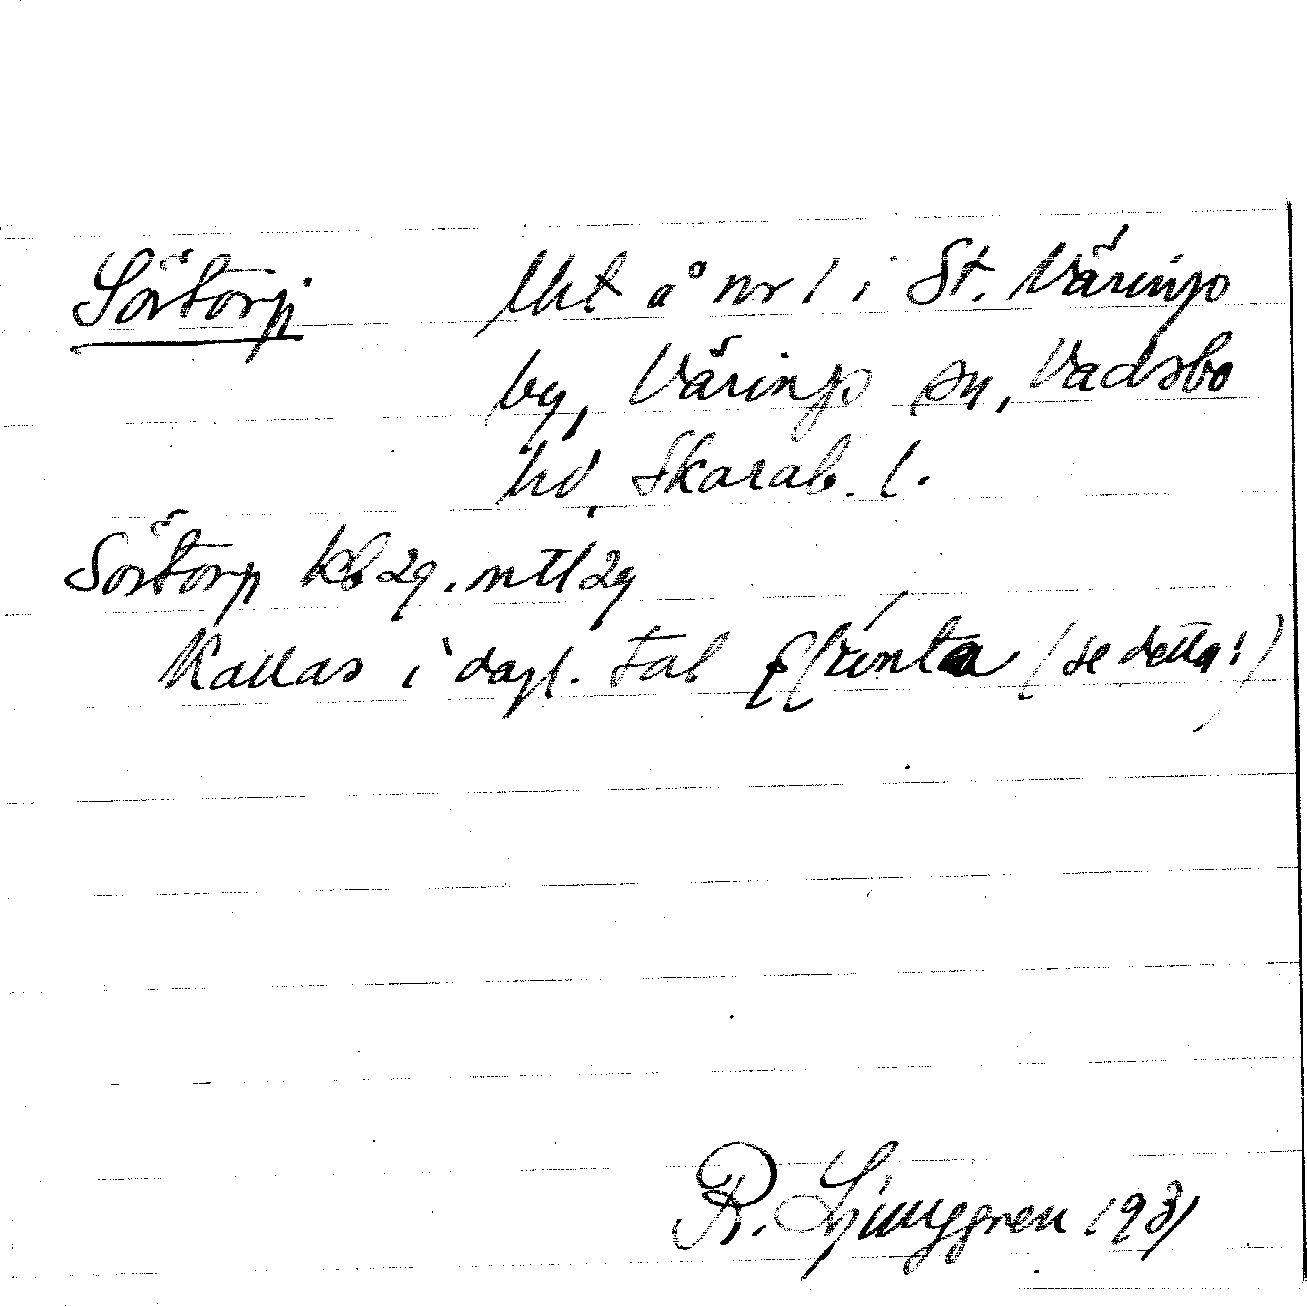 Sörtorp Uht å nr 1 i St. Värings
by, Värings sn, Vadsbo
hd, Skarab. l.
Sörtorp kb 29. mtl 29
Kallas i dagl. tal (se detta!)
R. Ljunggren 1931